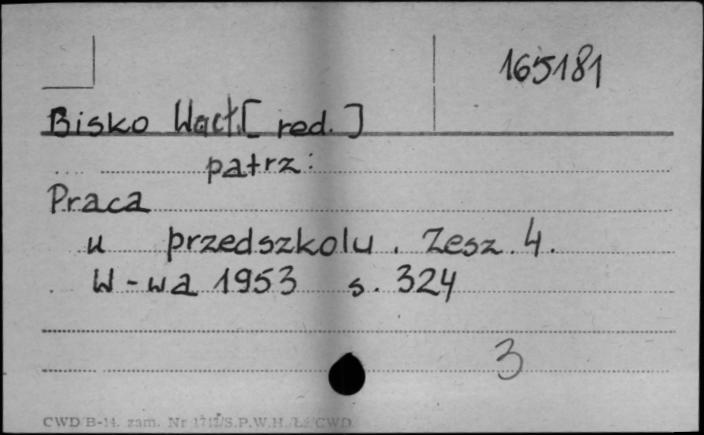 165181
Bisko Wacł. [red.]
patrz:
Praca
w przedszkolu. Zesz. 4.
W-wa 1953 s. 324
3
CWD B-14. zam. Nr 1712/S.P.W.H./Lż/CWD